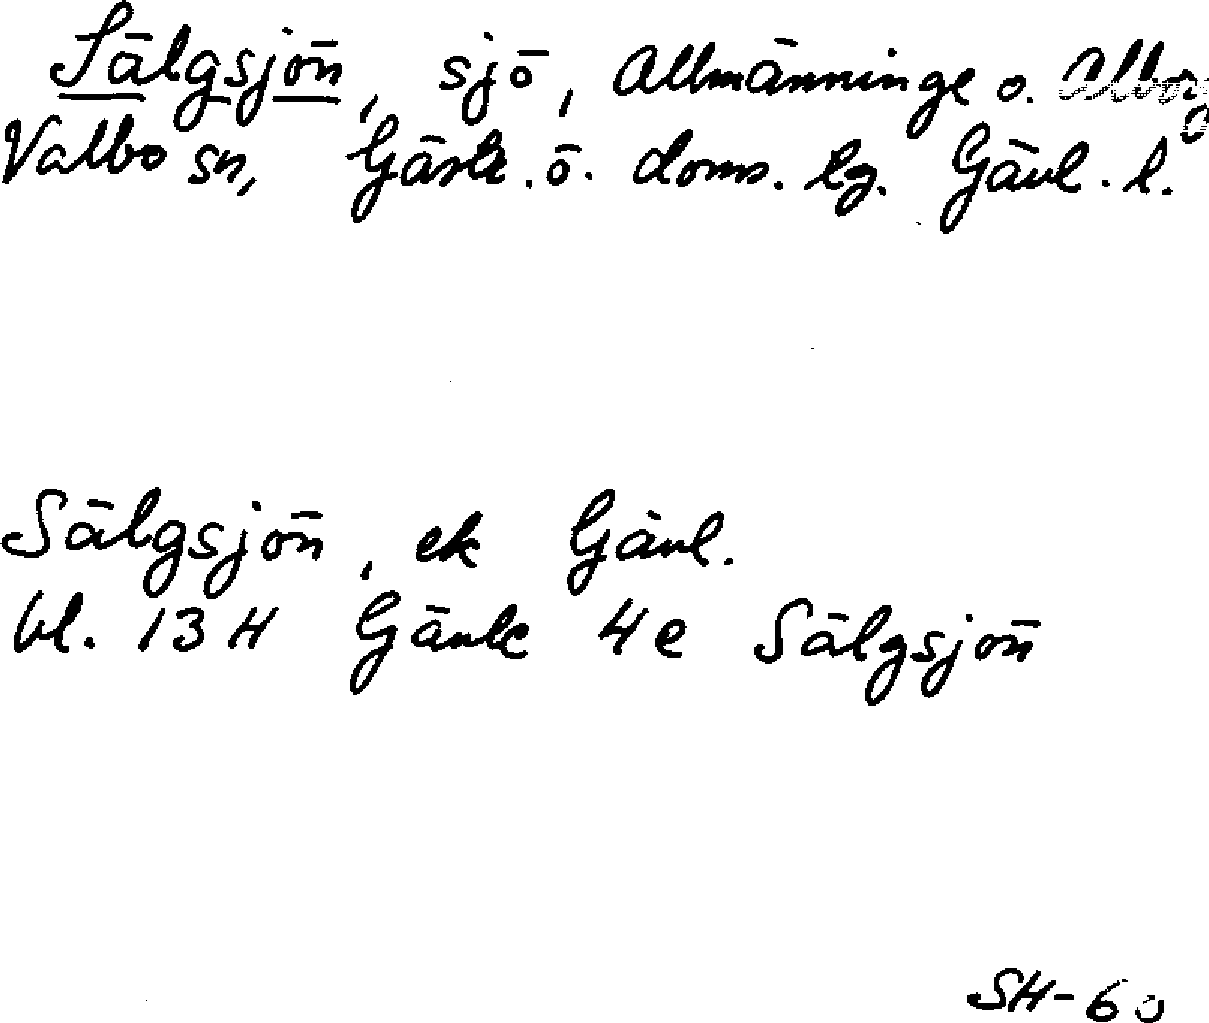 Sälgsjön, sjö, Allmänninge o.
Valbo sn, Gästr. ö. doms. lg. Gävl. l.
Sälgsjön, ek Gävl.
bl. 13 H Gävle 4e Sälgsjön
SH-60